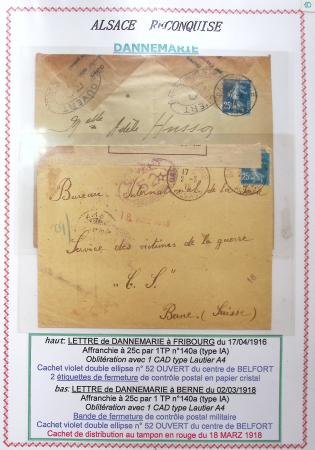 ALSACE RECONQUISE
DANNEMARIE
OUVERT
Melle Adèle Husson
25
17
25
Bureau International de la Paix
18
Service des victimes de la guerre
"C. S."
18
Berne (Suisse)
haut: LETTRE de DANNEMARIE à FRIBOURG du 17/04/1916
Affranchie à 25c par 1TP n°140a (type IA)
Oblitération avec 1 CAD type Lautier A4
Cachet violet double ellipse n° 52 OUVERT du centre de BELFORT
2 étiquettes de fermeture de contrôle postal en papier cristal
bas: LETTRE de DANNEMARIE à BERNE du 02/03/1918
Affranchie à 25c par 1TP n°140a (type IA)
Oblitération avec 1 CAD type Lautier A4
Bande de fermeture de contrôle postal militaire
Cachet violet double ellipse n° 52 OUVERT du centre de BELFORT
Cachet de distribution au tampon en rouge du 18 MARZ 1918